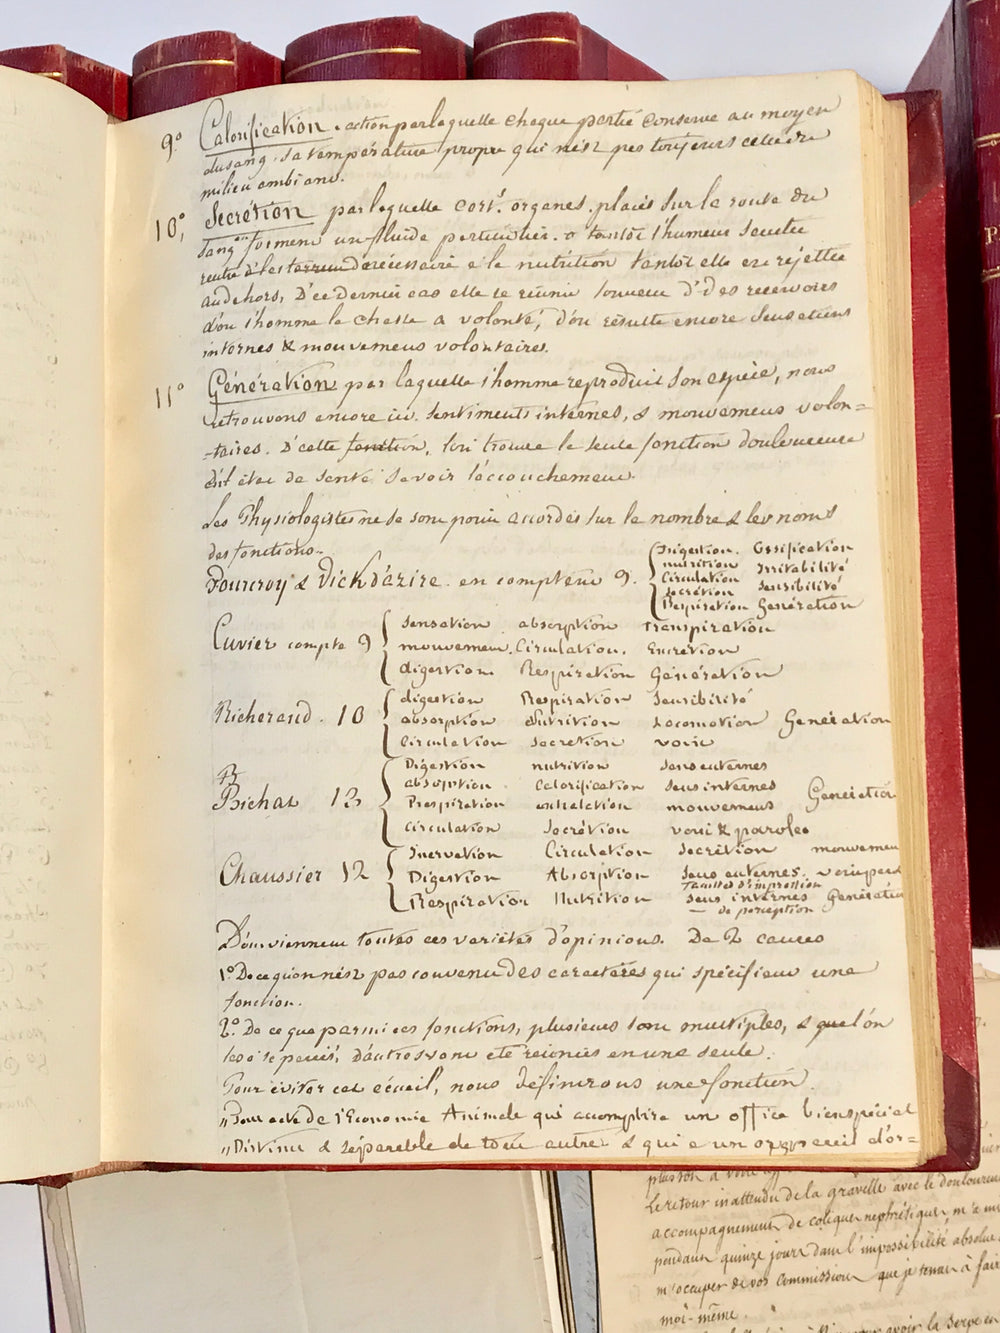 9.° Calorification, action par laquelle chaque partie conserve au moyen
du sang, sa température propre qui n'est pas toujours celle du
milieu ambiant.
10°, Secrétion par laquelle cert.s organes placés sur la route du
sang en forment un fluide particulier. o tantôt l'humeur Secretée
rentre nécessaire a la nutrition tantôt elle est rejettée
au dehors, D'ce dernier cas elle se réunit souvent d's des reservoirs
d'où l'homme la chasse a volonté, d'où résulte encore Sensations
internes & mouvemens volontaires.
11° Génération par laquelle l'homme reproduit son espèce, nous
retrouvons encore ici sentiments internes, & mouvemens volon=
-taires. D'cette fonction, l'on trouve la seule fonction douloureuse
d's l'état de santé savoir l'accouchement.
Les Physiologistes ne se sont point accordés sur le nombre & les noms
des fonctions.
Fourcroy & Vickd'azire en comptent 9.
Digestion. Ossification
nutrition Irritabilité
Circulation Sensibilité
secrétion
Respiration Génération
Cuvier compte 9
Sensation absorption Transpiration
mouvement. Circulation. Excrétion
digestion. Respiration Génération
Richerand. 10
digestion Respiration Sensibilité
absorption Nutrition Locomotion Génération
Circulation Secretion voix
Bichat 13
Digestion nutrition sens externes
absorption Calorification sens internes
Respiration exhalation mouvemens Génération
circulation Secrétion voix & parole
Chaussier 12
Inervation Circulation Secrétion mouvemen
Digestion Absorption Sens externes. voix
faculté d'impression
Respiration Nutrition sens internes Génération
— de perception
D'où viennent toutes ces variétés d'opinions. De 2 causes
1° De ce qu'on n'est pas convenu des caractères qui spécifient une
fonction.
2°. De ce que parmi ces fonctions, plusieurs sont multiples, & qu'on
les a separés, d'autres ont été réunies en une seule.
Pour éviter cet écueil, nous définirons une fonction.
„Tout acte de l'Economie Animale qui accomplire un office bien spécial
„Distinct & séparable de tout autre & qui a un appareil d'or=
plus ton a votre
Le retour inattendu de la gravelle avec le douloureu
accompagnement de coliques nephrétiques, m'a mi
pendant quinze jours dans l'impossibilité absolue
m'occuper de vos commissions que je tenais à fair
moi-même.
avoir la Serpe en